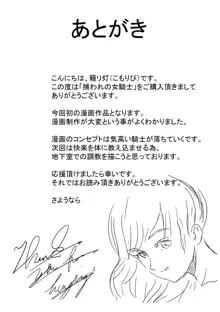 あとがき
こんにちは、籠り灯(こもりび)です。
この度は「捕われの女騎士」をご購入頂きまして
ありがとうございます。
今回初の漫画作品となります。
漫画制作が大変という事がよくわかりました。
漫画のコンセプトは気高い騎士が落ちていくです。
次回は快楽を体に教え込ませる為の
地下室での調教を描こうと思っております。
応援頂けましたら幸いです。
それではお読み頂きありがとうございます。
さようなら